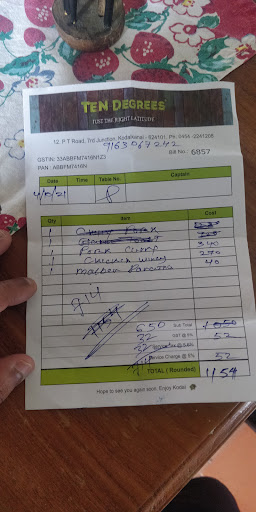 TEN DEGREES
JUST THE RIGHT LATITUDE
12, P T Road, 7rd Junction, Kodaikanal - 624101. Ph: 0454 -2241208
9163067242
GSTIN: 33ABBFM7416N1Z2 Bill No.: 6857
PAN : ABBFM7416N
Date Time Table No. Captain
4/5/21 P
Qty Item Cost
1 Pork 
1 
1 Pork Curry 340
1 Chicken wings 270
1 Malabar Parotta 40
914
650 Sub Total 1050
32 GST @ 5% 52
Service Charge @ 5% 52
914 TOTAL (Rounded) 1154
Hope to see you again soon. Enjoy Kodai